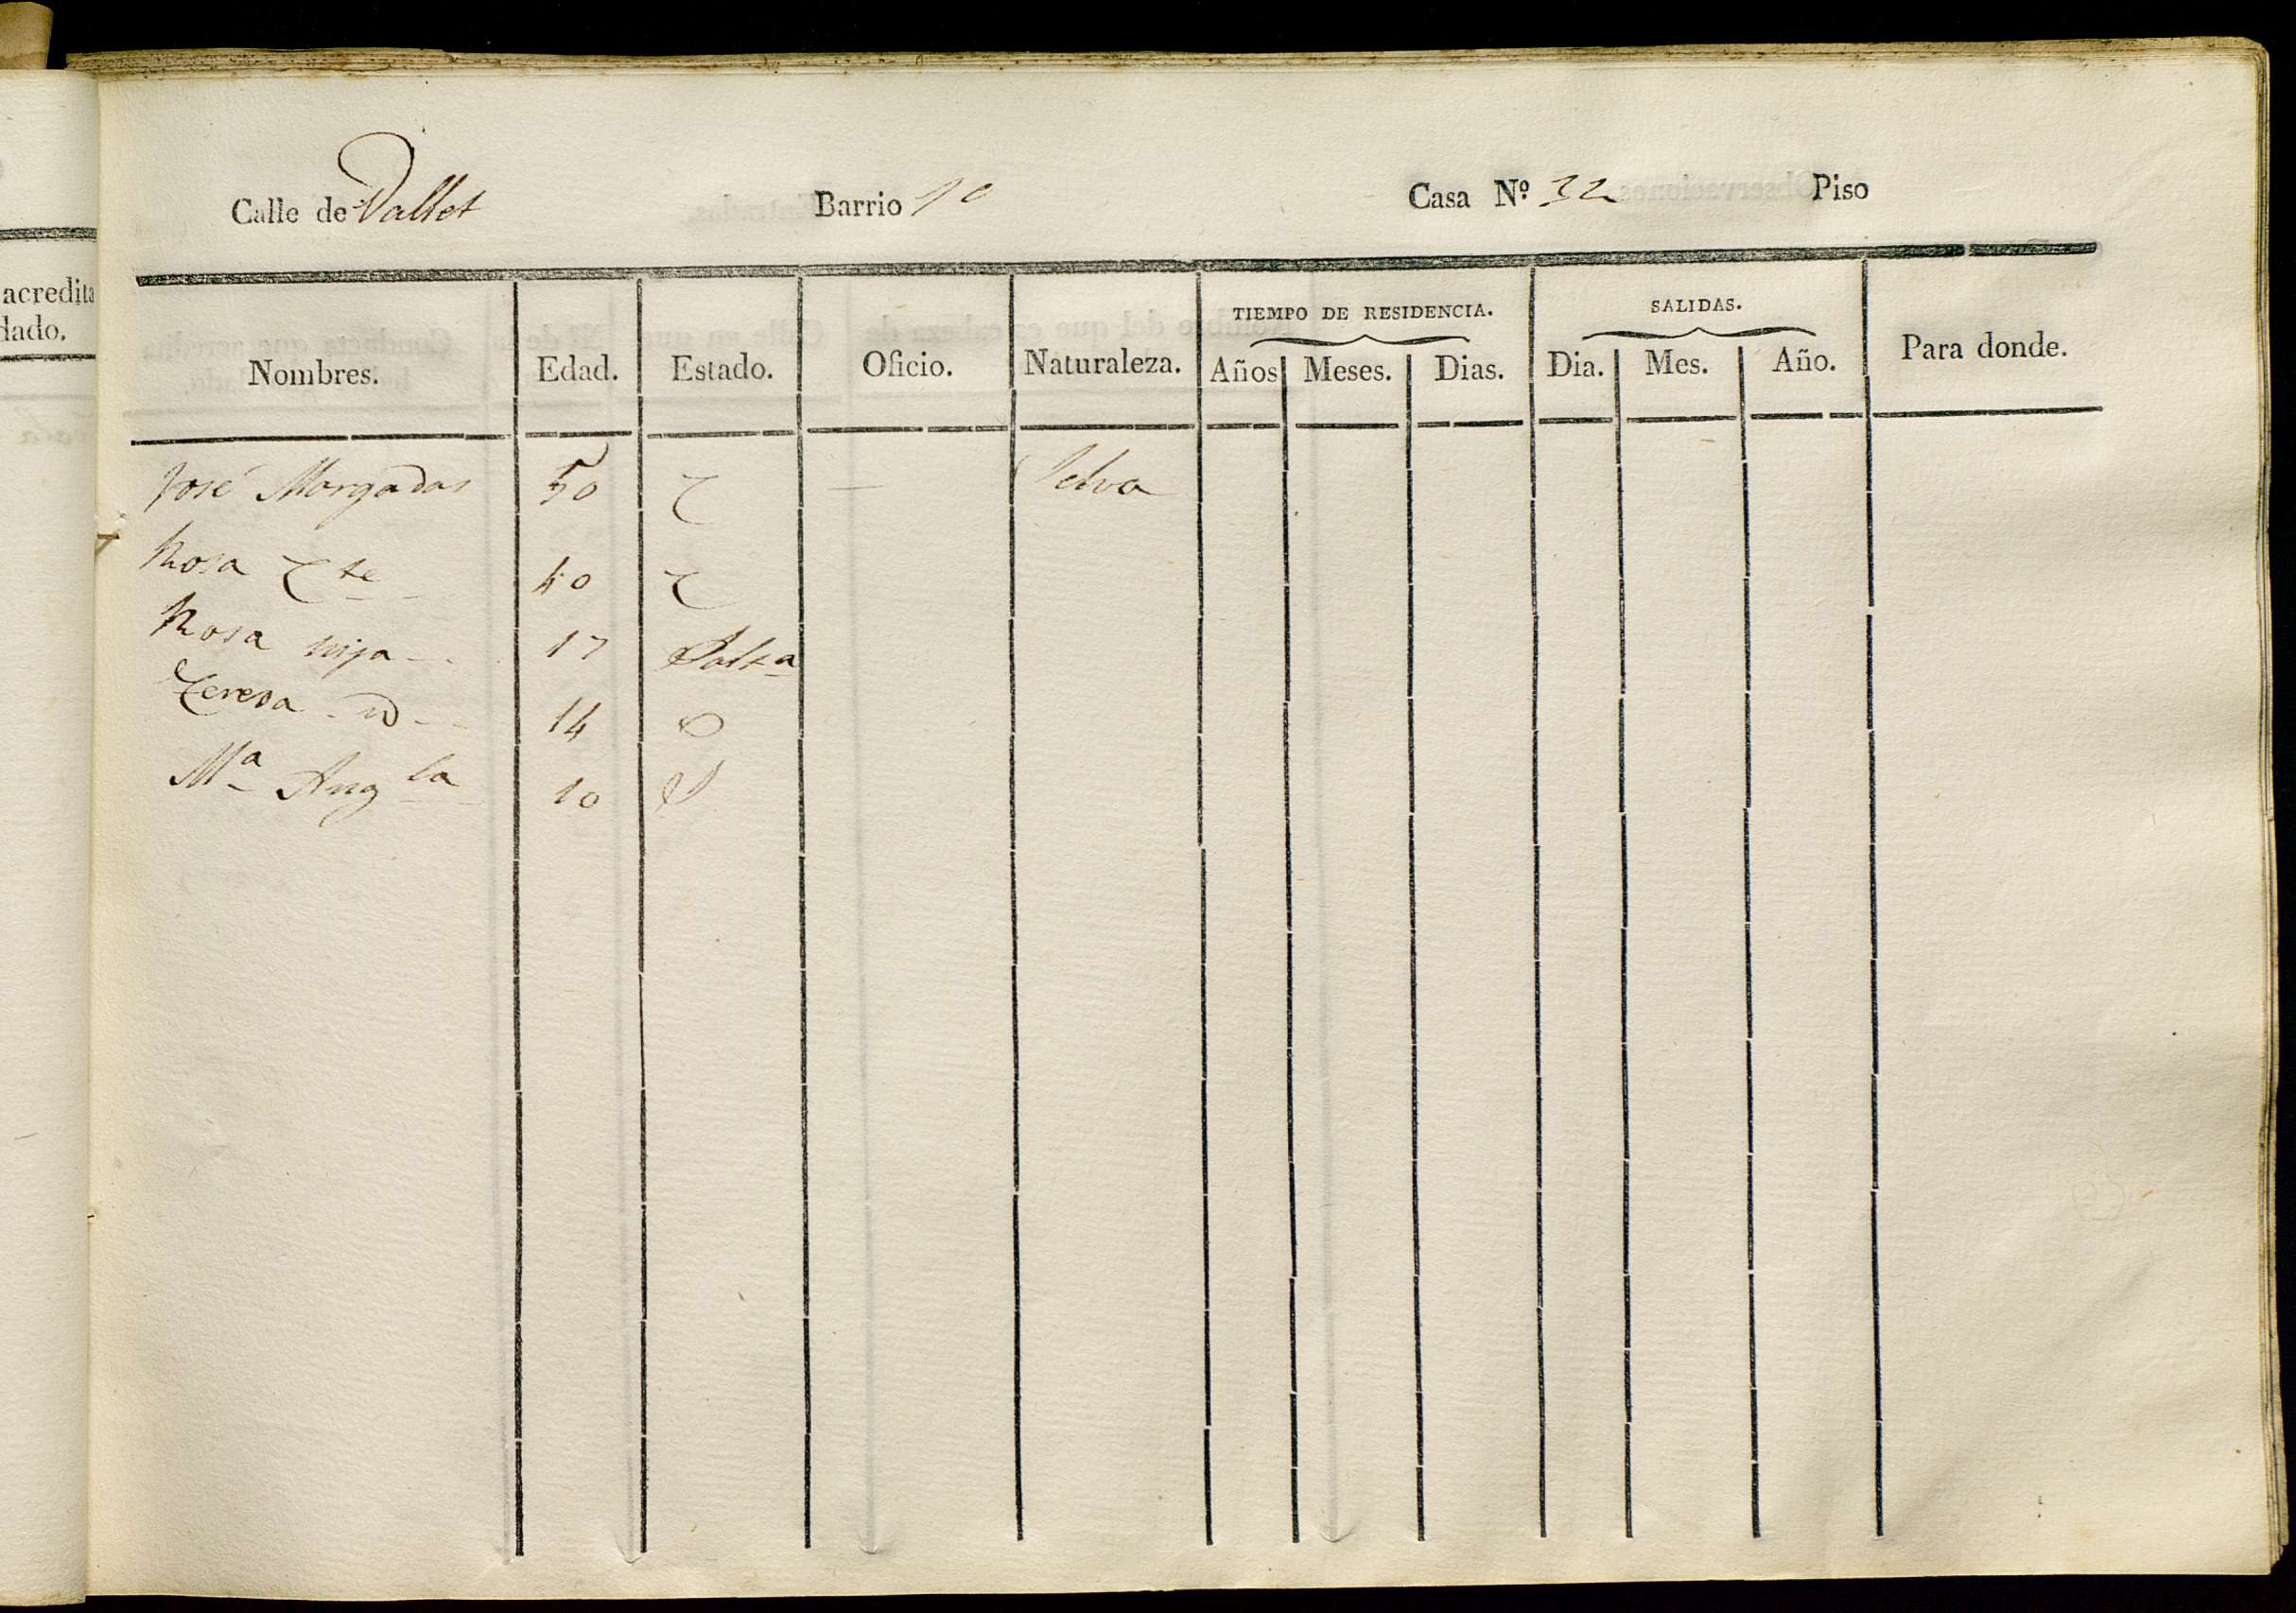 acredita
dado.
Calle de Vallet Barrio 10 Casa Nº 32 Piso
TIEMPO DE RESIDENCIA. SALIDAS.
Nombres. Edad. Estado. Oficio. Naturaleza. Años Meses. Dias. Dia. Mes. Año. Para donde.
José Morgadas 50 C — Selva
Rosa C te 40 C
Rosa hija 17 Solta
Teresa id 14 S
Mª Angla 10 S